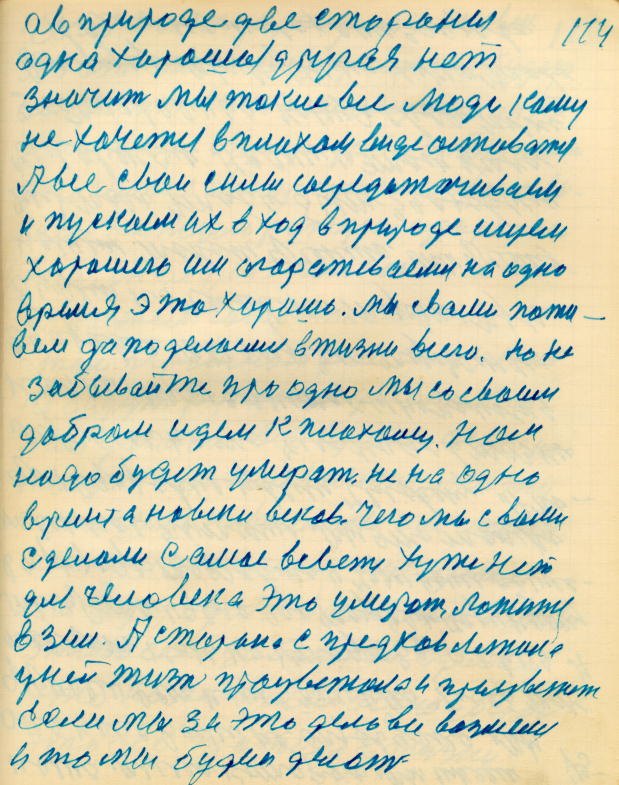 ав природе две стороны 114
одна хороша другая нет
значит мы такие все люди кому
не хочетя в плохом виде оставатя
А все свои силы сосредотачиваем
и пускаем их в ход в природе ищем
хорошего или огораживаемя на одно
время это хорошо. мы с вами пожи-
вем да поделаем в жизни всего. но не
забывайте про одно мы со своим
добром идем к плохому. нам
надо будет умерат. не на одно
время а на веки веков. Чего мы с вами
сделали самое в свети хужи нет
для человека это умерат, ложитя
в зем. А сторона с предков лежала
у ней жизн процветала и процветает
если мы за это дело все возмем
и то мы будем делат